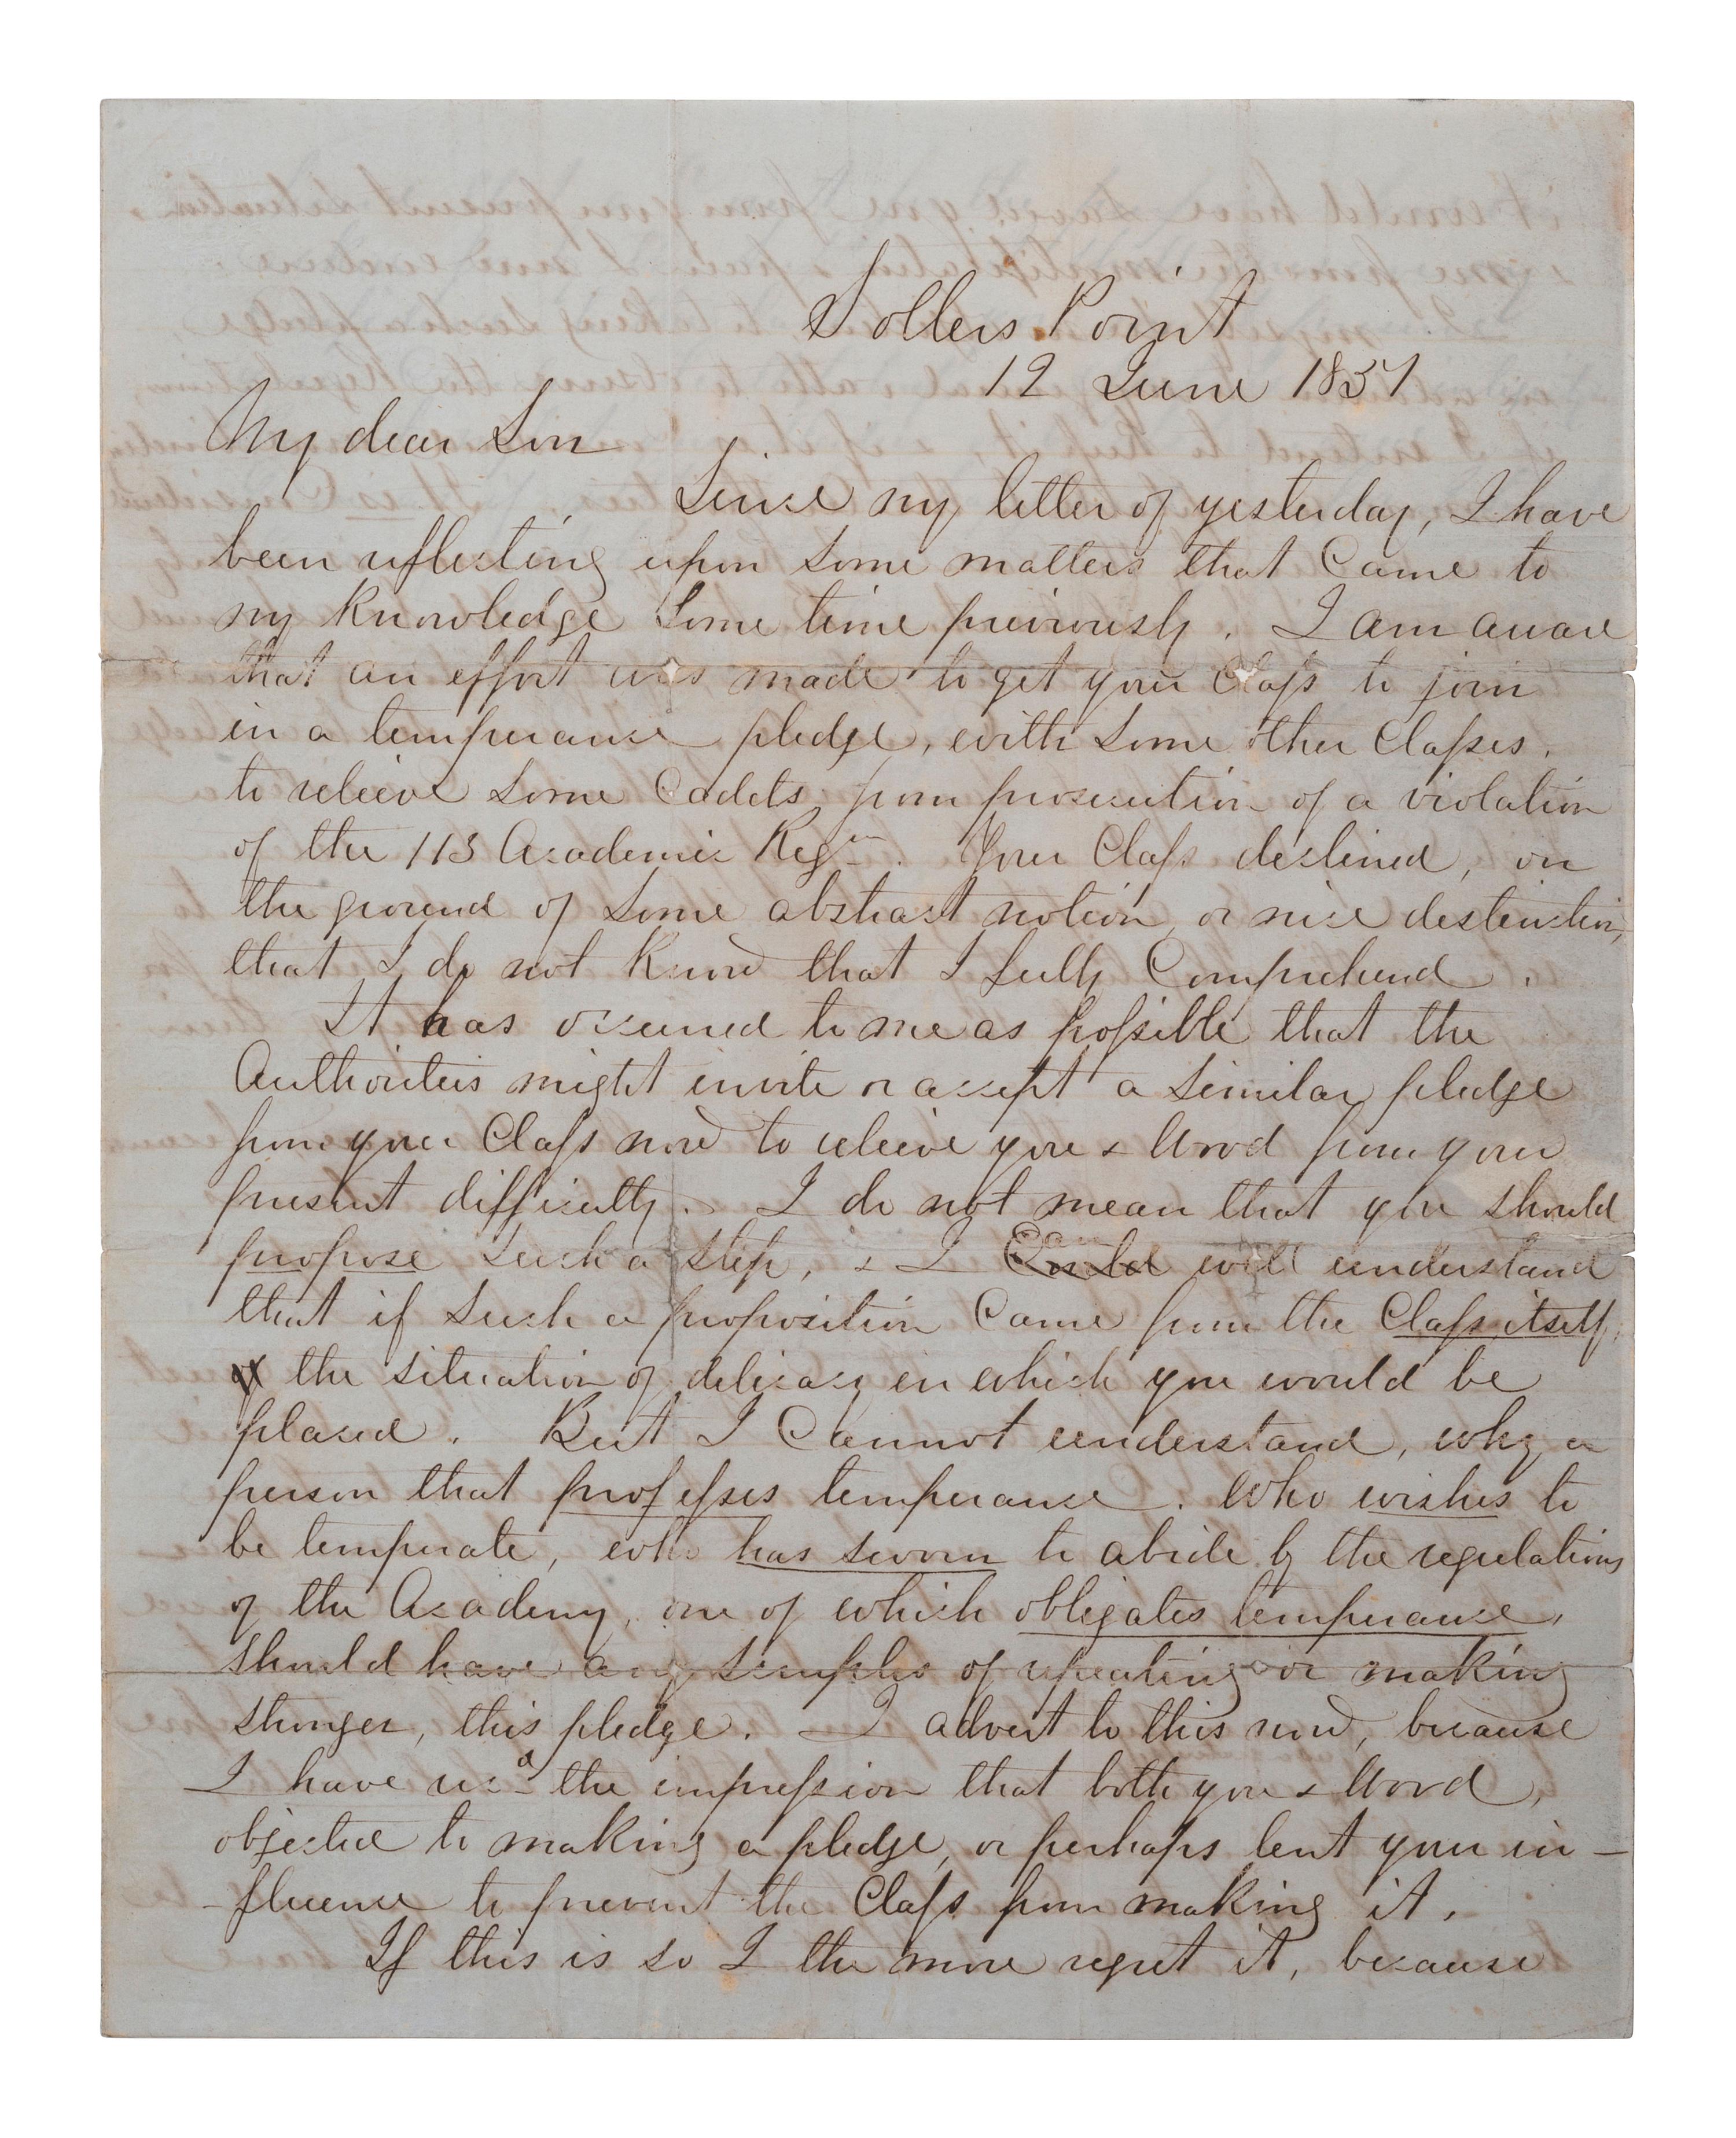 Sollers Point
12 June 1851
My dear Son
Since my letter of yesterday, I have
been reflecting upon some matters that Came to
my Knowledge some time previously. I am aware
that an effort was made to get your Class to join
in a temperance pledge, with some other Classes,
to relieve some Cadets from prosecution of a violation
of the 113 Academic Regn. Your Class declined, on
the ground of some abstract notion, or nice distinction,
that I do not Know that I fully Comprehend.
It has occurred to me as possible that the
Authorities might invite or accept a similar pledge
from your Class now to relieve you & Wood from your
present difficulty. I do not mean that you should
propose such a step, & I Can well understand
that if such a proposition Came from the Class itself,
the situation of delicacy in which you would be
placed. But I Cannot understand, why a
person that professes temperance. Who wishes to
be temperate, who has sworn to abide by the regulations
of the Academy, one of which obligates temperance,
should have any scruples of repeating or making
stronger, this pledge. I advert to this now, because
I have recd the impression that both you & Wood,
objected to making a pledge, or perhaps lent your in-
-fluence to prevent the Class from making it.
If this is so I the more regret it, because